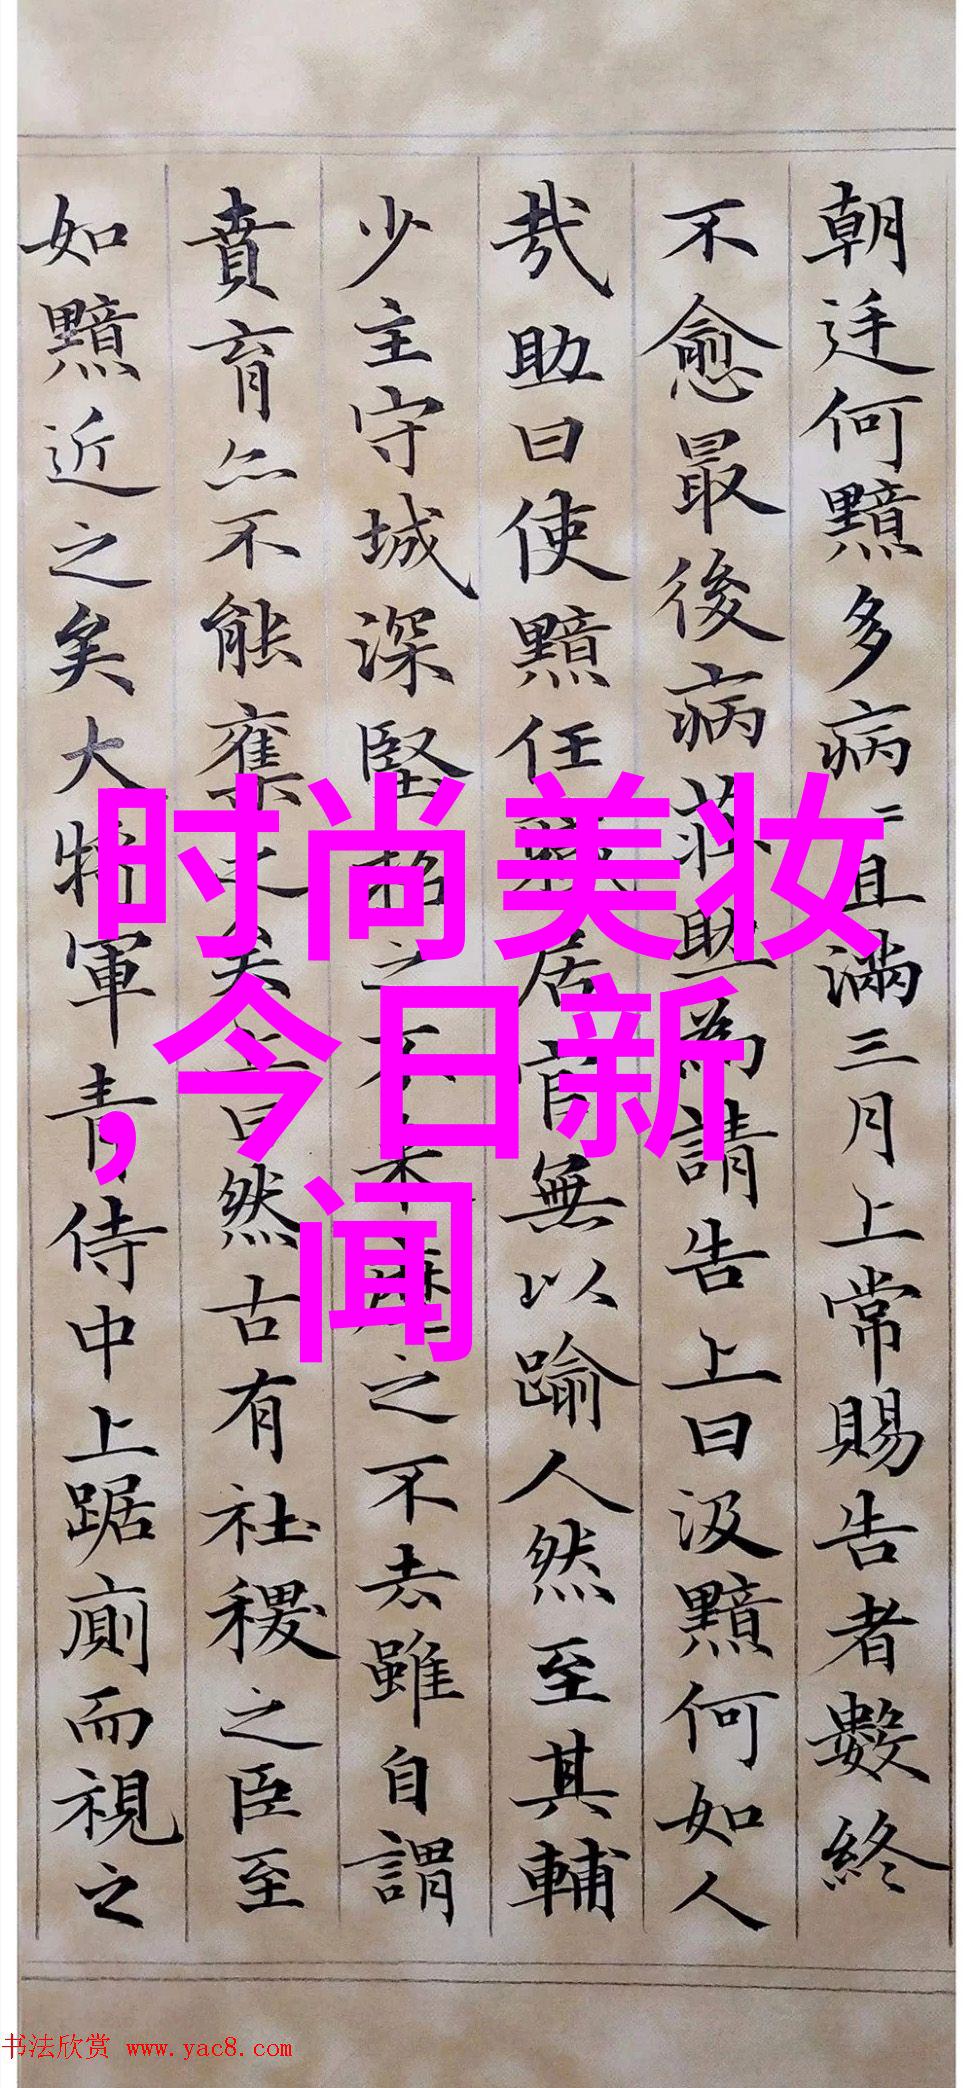 朝廷何黯多病病且滿三月上常賜告者數終
不愈最後病莊助為請告上曰汲黯何如人
哉助曰使黯任職居官無以踰人然至其輔
少主守城深堅招之不来麾之不去雖自謂
賁育亦不能奪之矣上曰然古有社稷之臣至
如黯近之矣大將軍青侍中上踞廁而視之
时尚美妆
,今日新
闻
书法欣赏 www.yac8.com